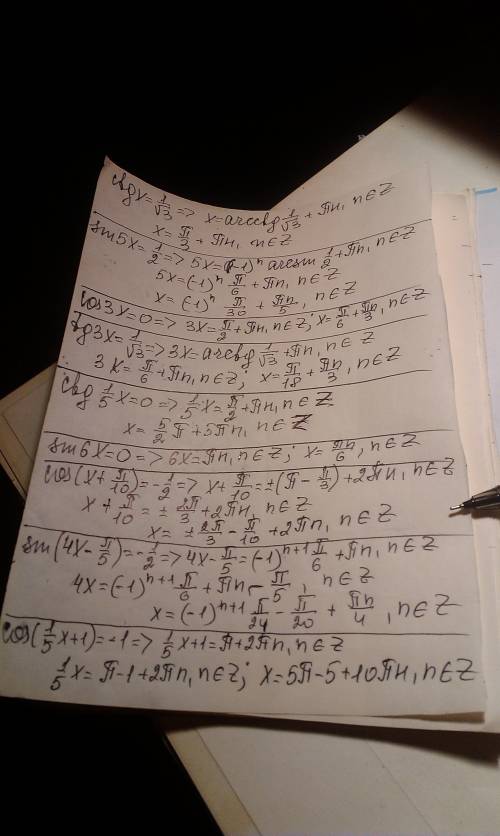 ctg x = 1/√3 => x = arcctg 1/√3 + πn, n∈Z
x = π/3 + πn, n∈Z
sin 5x = 1/2 => 5x = (-1)ⁿ arcsin 1/2 + πn, n∈Z
5x = (-1)ⁿ π/6 + πn, n∈Z
x = (-1)ⁿ π/30 + πn/5, n∈Z
cos 3x = 0 => 3x = π/2 + πn, n∈Z; x = π/6 + πn/3, n∈Z
tg 3x = 1/√3 => 3x = arcctg 1/√3 + πn, n∈Z
3x = π/6 + πn, n∈Z; x = π/18 + πn/3, n∈Z
ctg 1/5 x = 0 => 1/5 x = π/2 + πn, n∈Z
x = 5/2 π + 5πn, n∈Z
sin 6x = 0 => 6x = πn, n∈Z; x = πn/6, n∈Z
cos(x + π/10) = -1/2 => x + π/10 = ±(π - π/3) + 2πn, n∈Z
x + π/10 = ± 2π/3 + 2πn, n∈Z
x = ± 2π/3 - π/10 + 2πn, n∈Z
sin(4x - π/5) = -1/2 => 4x - π/5 = (-1)ⁿ⁺¹ π/6 + πn, n∈Z
4x = (-1)ⁿ⁺¹ π/6 + πn - π/5, n∈Z
x = (-1)ⁿ⁺¹ π/24 - π/20 + πn/4, n∈Z
cos(1/5 x + 1) = -1 => 1/5 x + 1 = π + 2πn, n∈Z
1/5 x = π - 1 + 2πn, n∈Z; x = 5π - 5 + 10πn, n∈Z